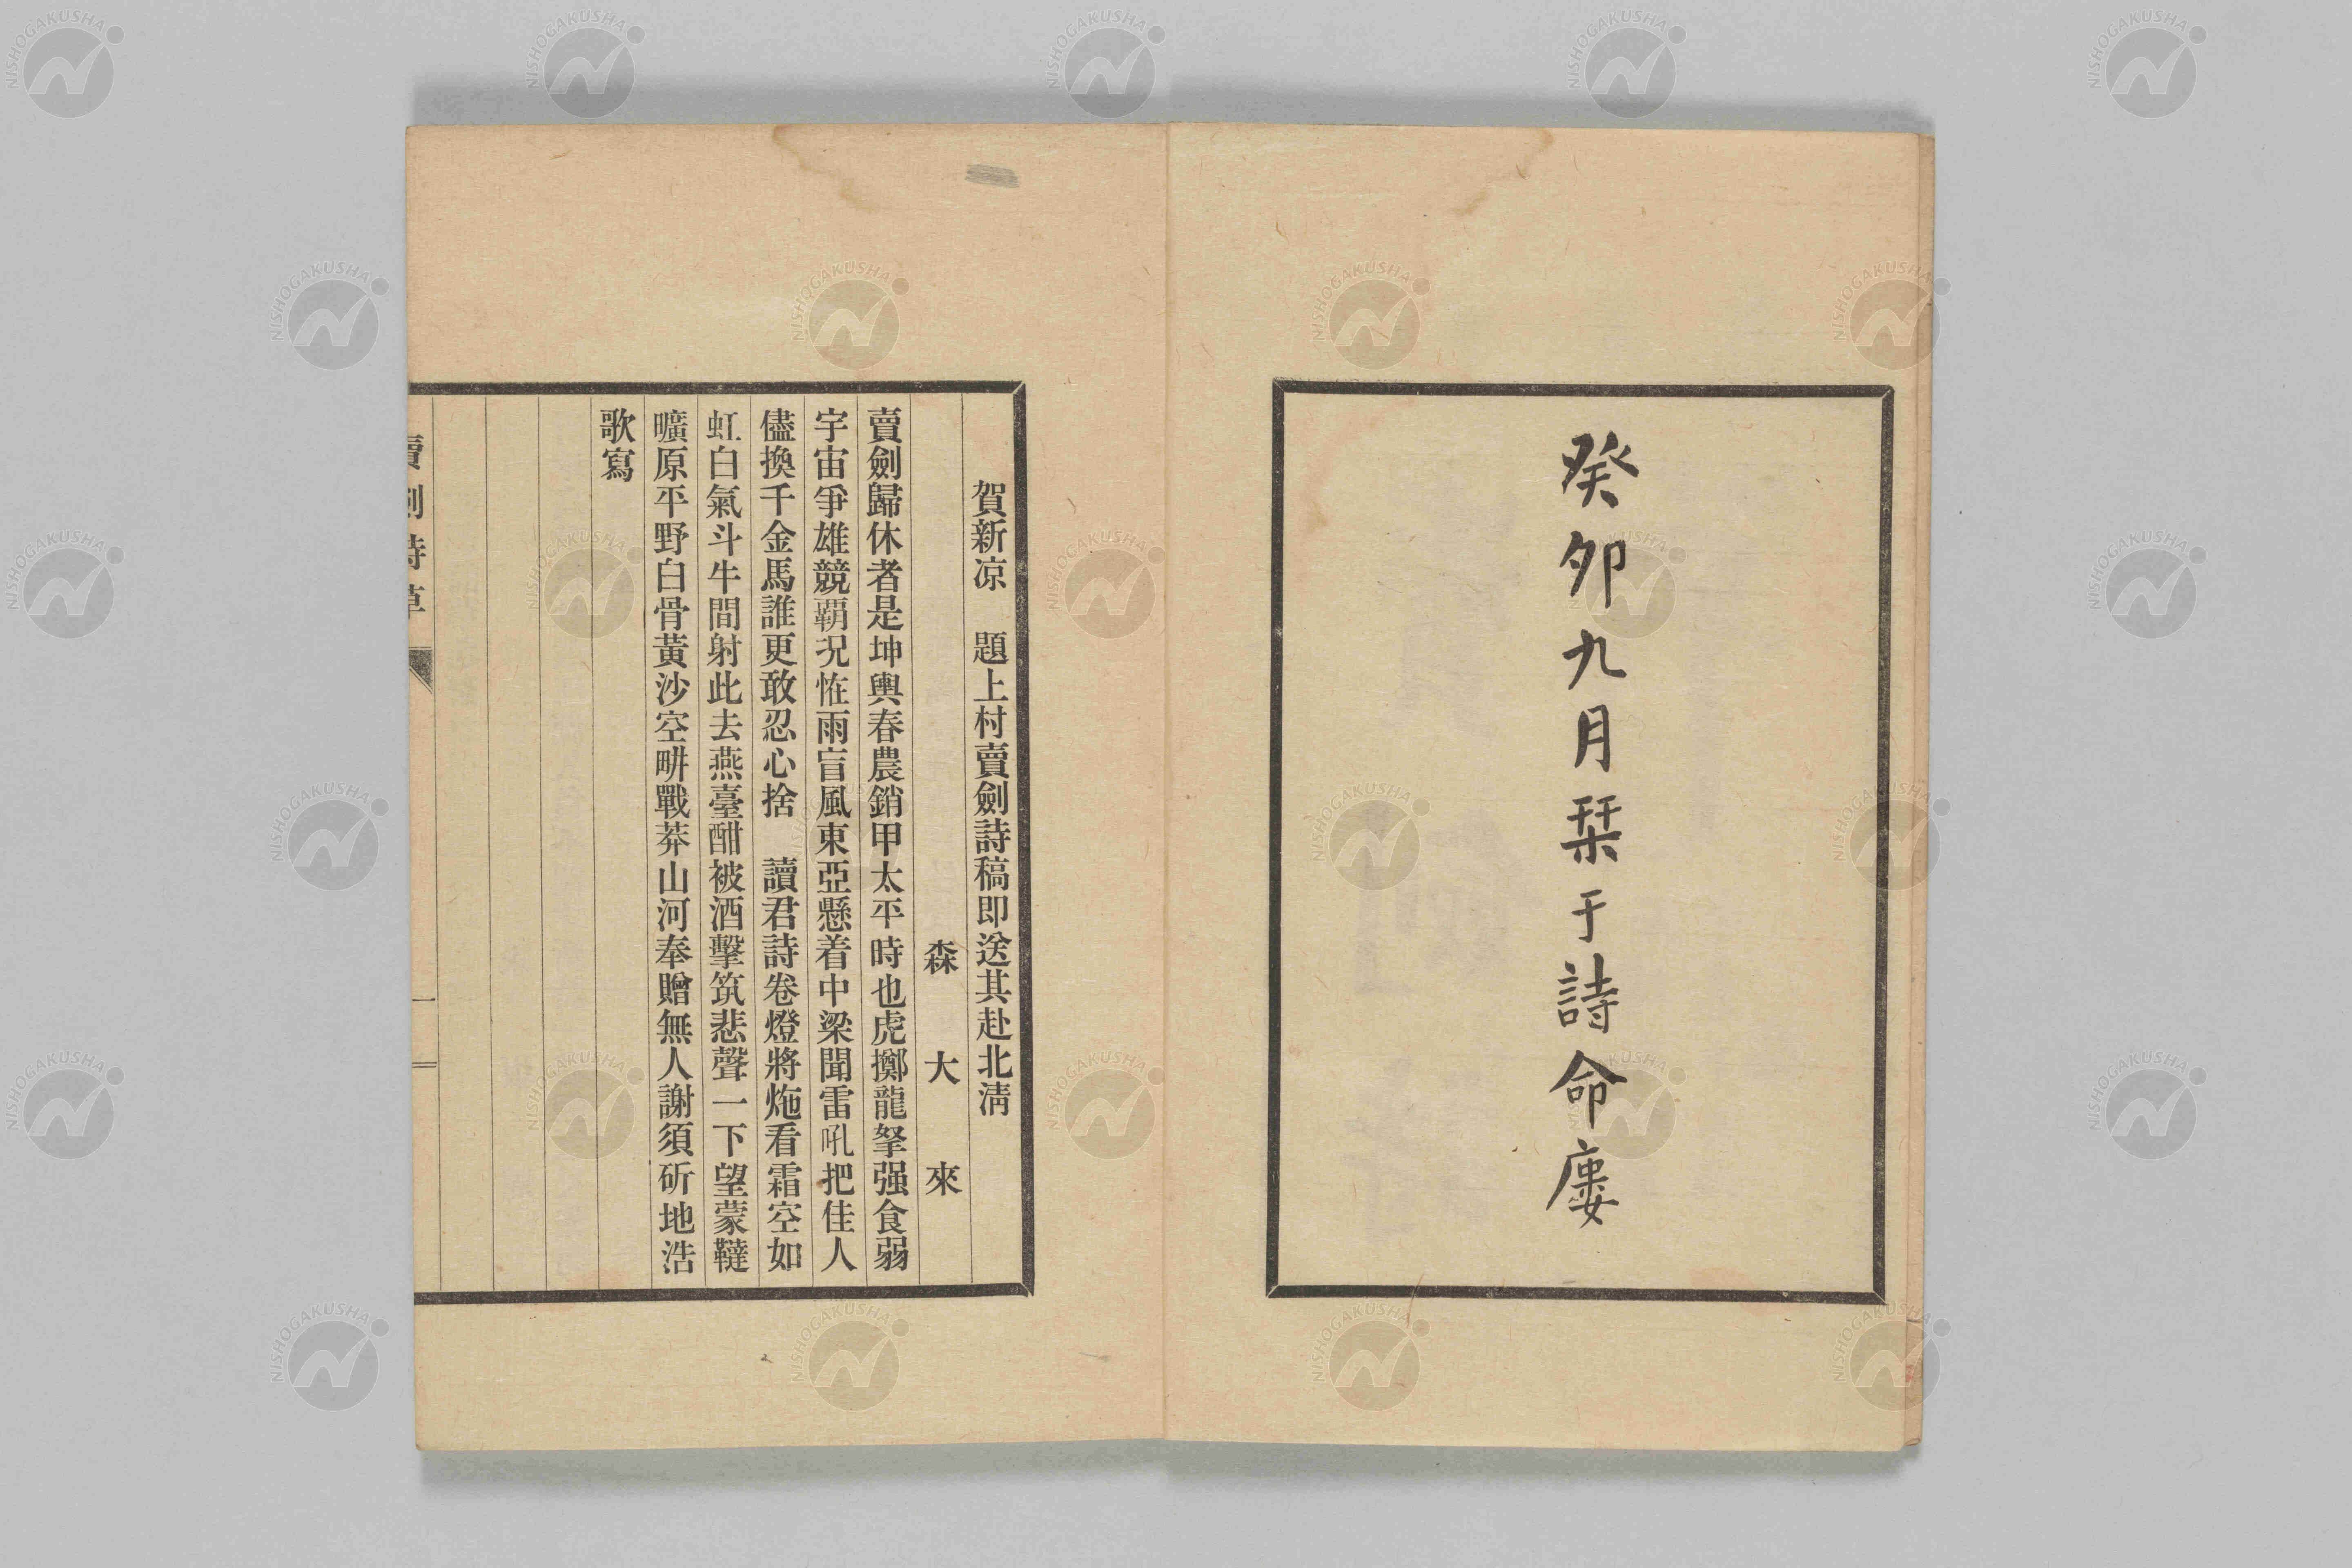 癸卯九月栞于詩命廔
賀新凉　題上村賣劍詩稿即送其赴北清
森大來
賣劍歸休者是坤輿春農銷甲太平時也虎擲龍拏强食弱
宇宙爭雄競覇況恠雨盲風東亞懸着中梁聞雷吼把佳人
儘換千金馬誰更敢忍心捨　讀君詩卷燈將灺看霜空如
虹白氣斗牛間射此去燕臺酣被酒擊筑悲聲一下望蒙韃
曠原平野白骨黃沙空畊戰莽山河奉贈無人謝須斫地浩
歌寫
賣劍詩草
一
NISHOGAKUSHA